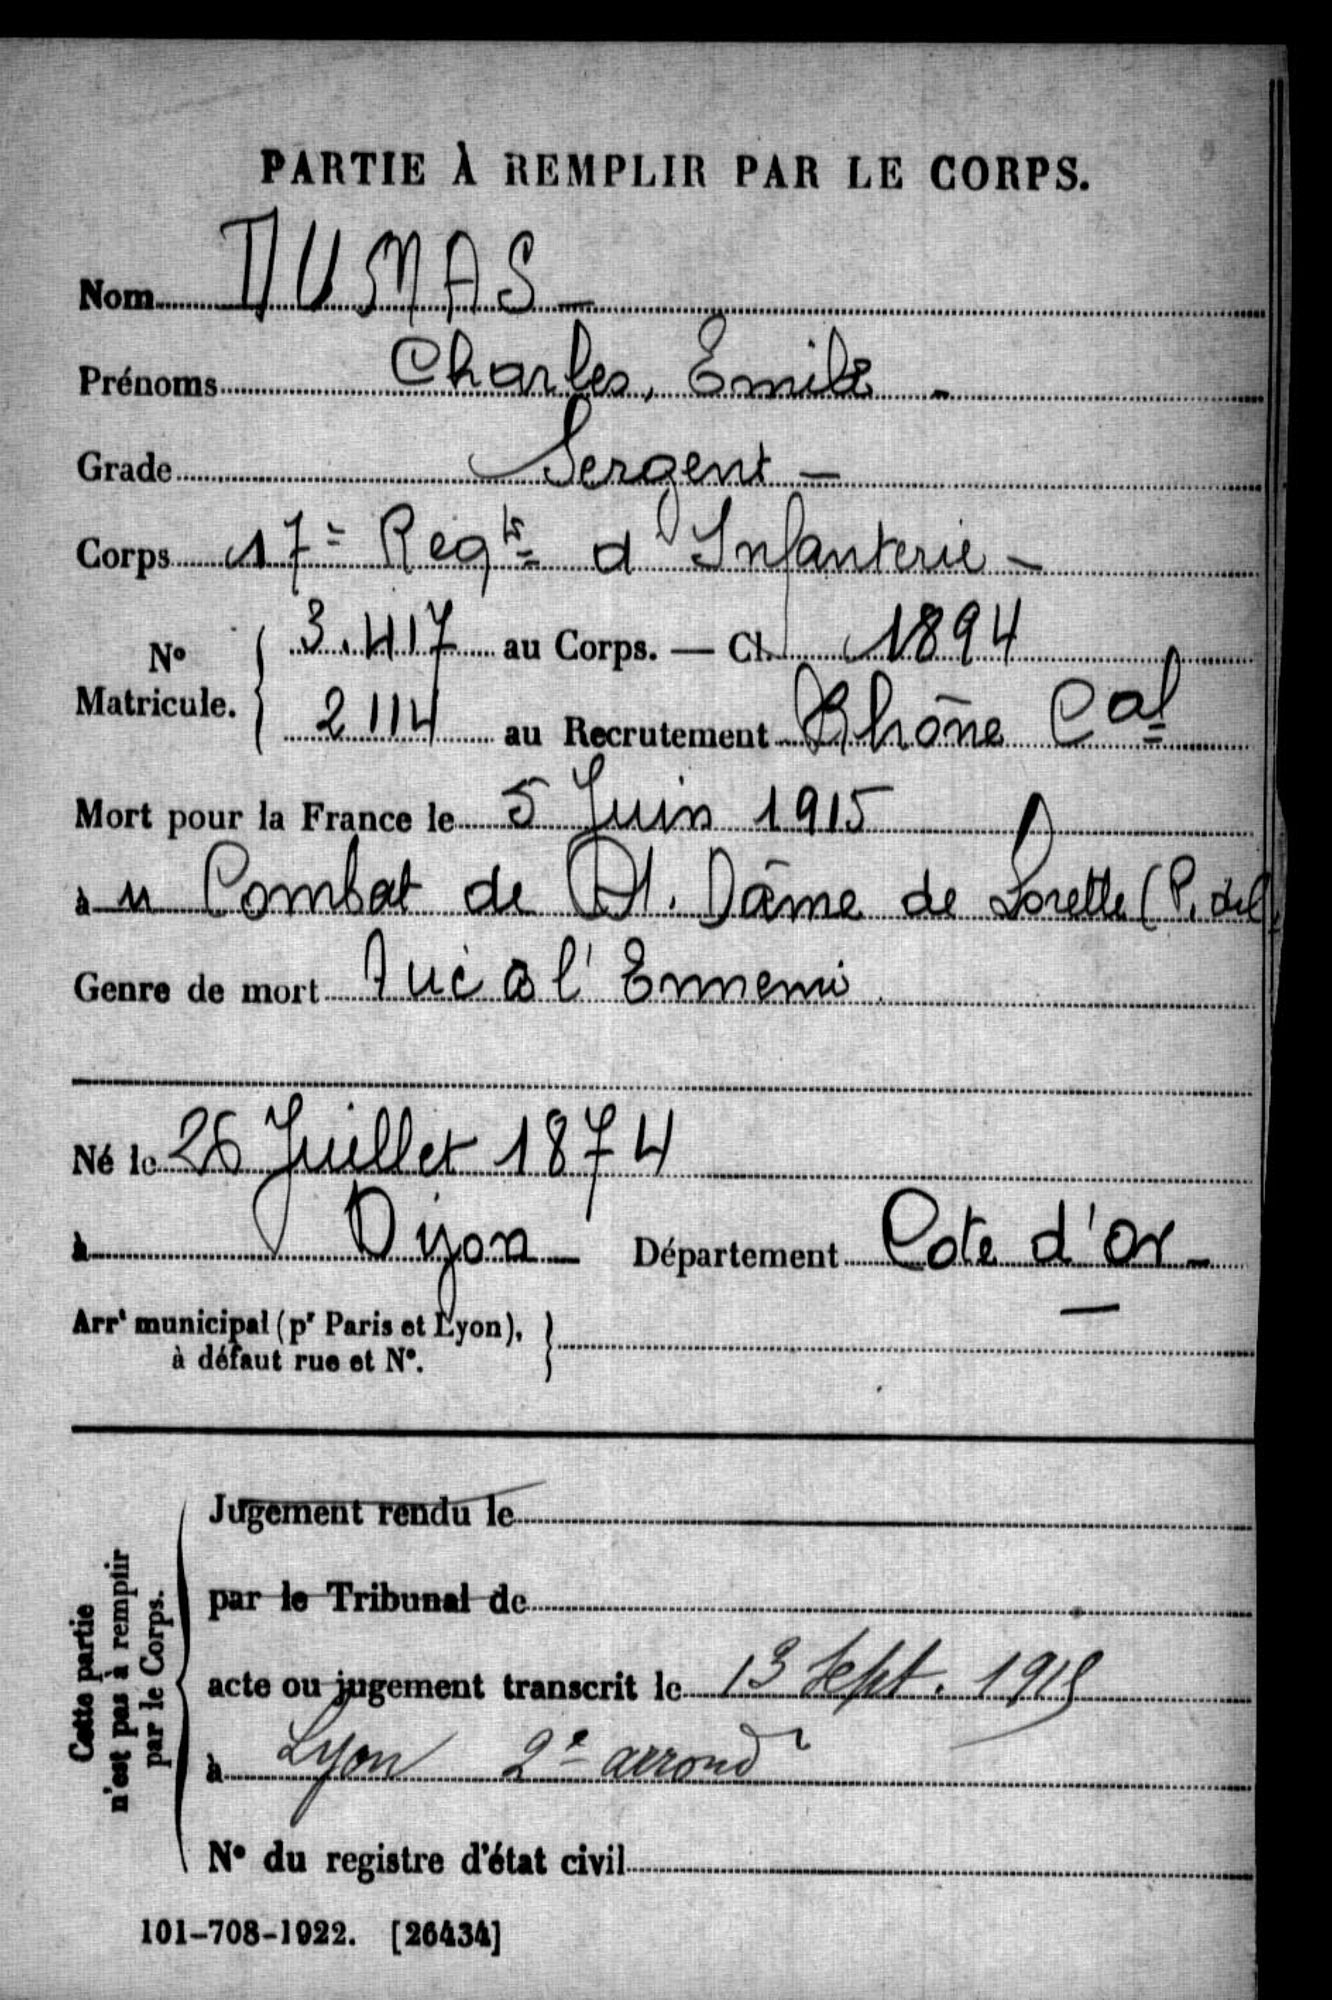 PARTIE À REMPLIR PAR LE CORPS.
Nom DUMAS –
Prénoms Charles, Emile –
Grade Sergent –
Corps 17e Regt d'Infanterie –
N° Matricule. { 3.417 au Corps. — Cl. 1894
2114 au Recrutement Rhône Cal
Mort pour la France le 5 Juin 1915
à u Combat de Nt. Dâme de Lorette (P. de C
Genre de mort Tué à l'Ennemi
Né le 26 Juillet 1874
à Dijon – Département Cote d'Or –
Arrt municipal (pr Paris et Lyon), à défaut rue et N°. }
Cette partie n'est pas à remplir par le Corps.
Jugement rendu le
par le Tribunal de
acte ou jugement transcrit le 13 Sept. 1915
à Lyon 2e arrondr
N° du registre d'état civil
101-708-1922. [26434]